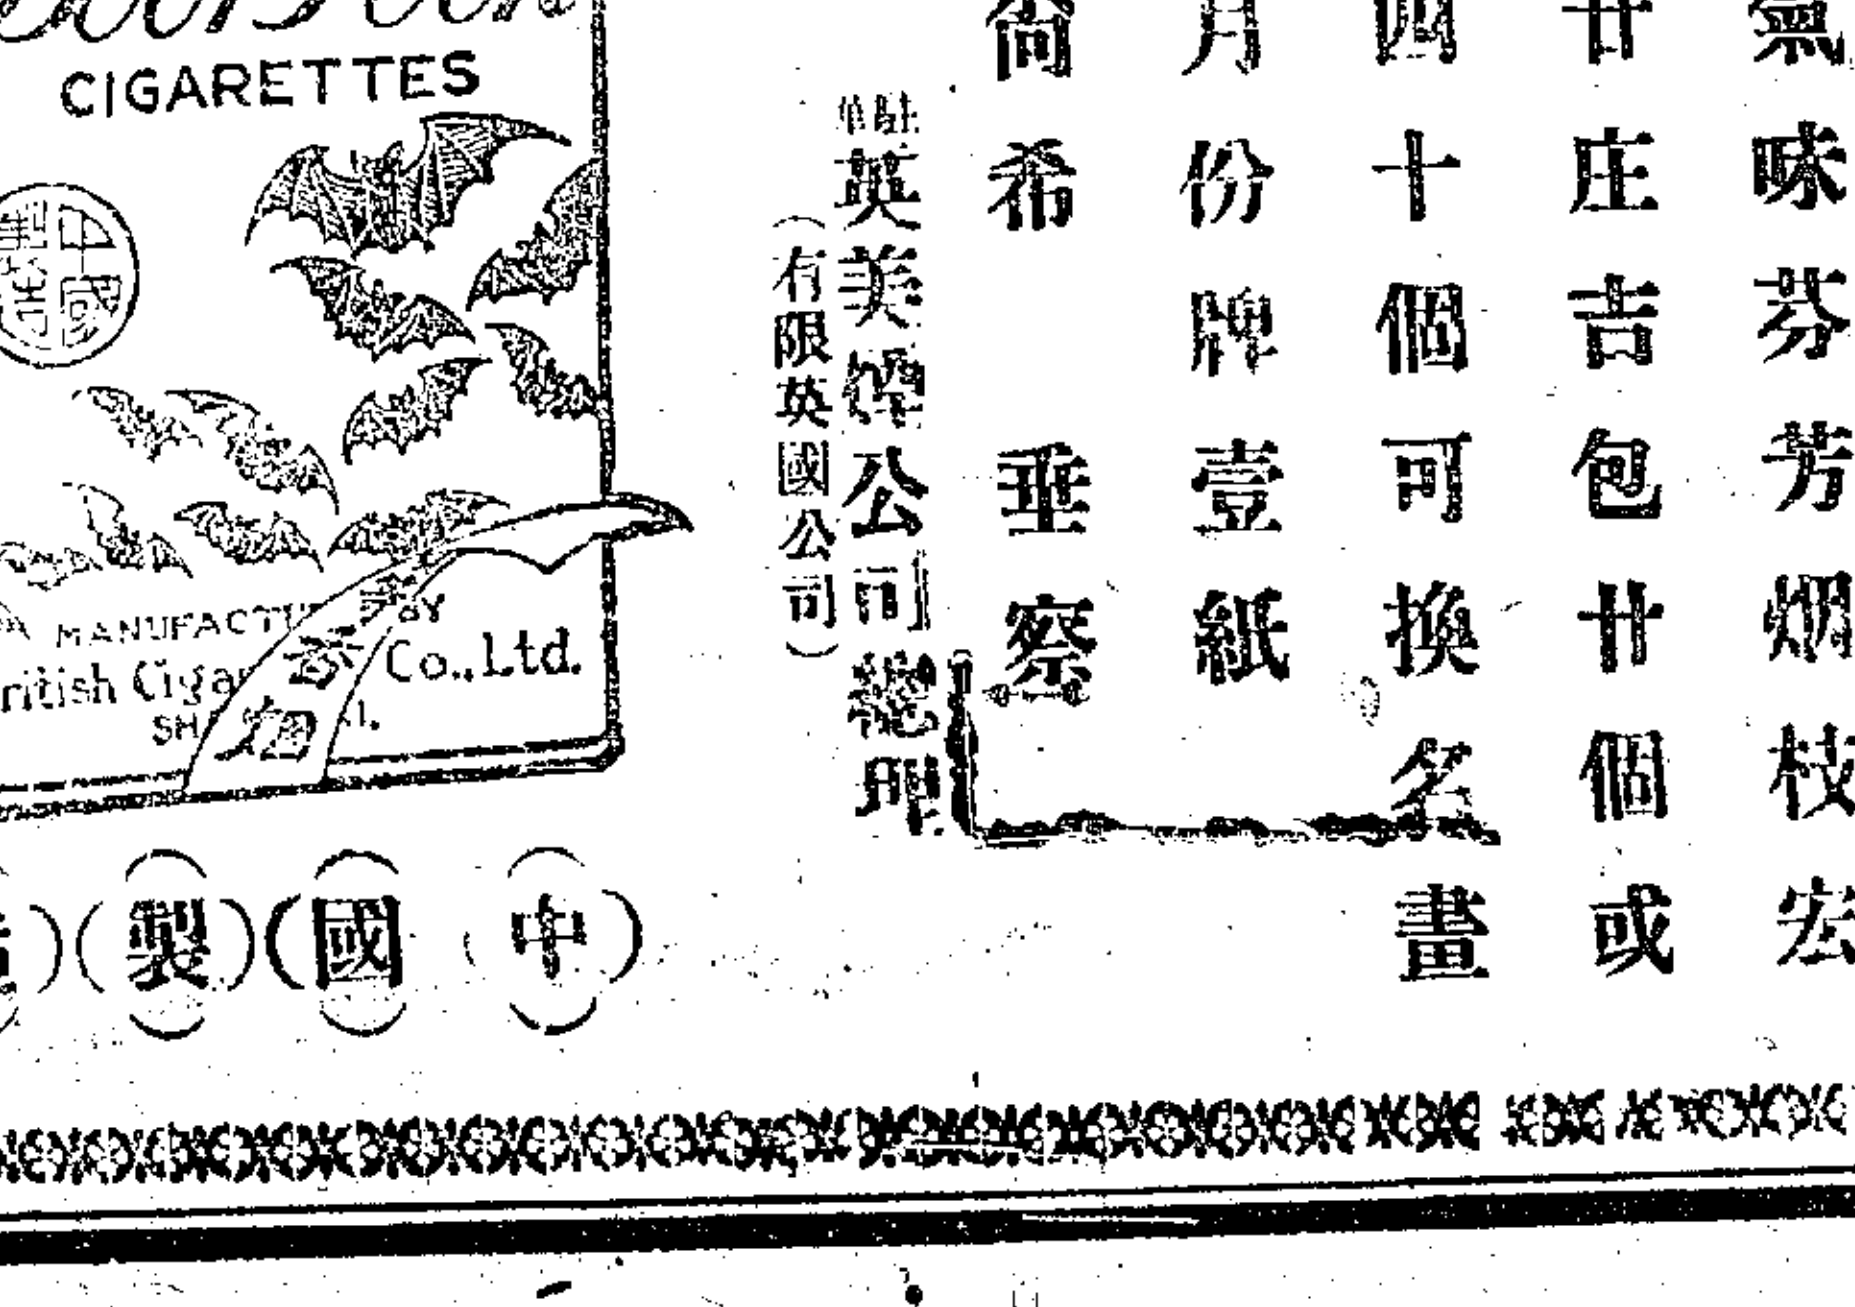 氣味芬芳烟枝宏
廿庄吉包廿個或
四十個可換名畫
月份牌壹紙
尙希垂察
駐華英美煙公司總理
（有限英國公司）
CIGARETTES
中國
MANUFACTU BY
ritish Cigar Co., Ltd.
SH I.
烟
中國製